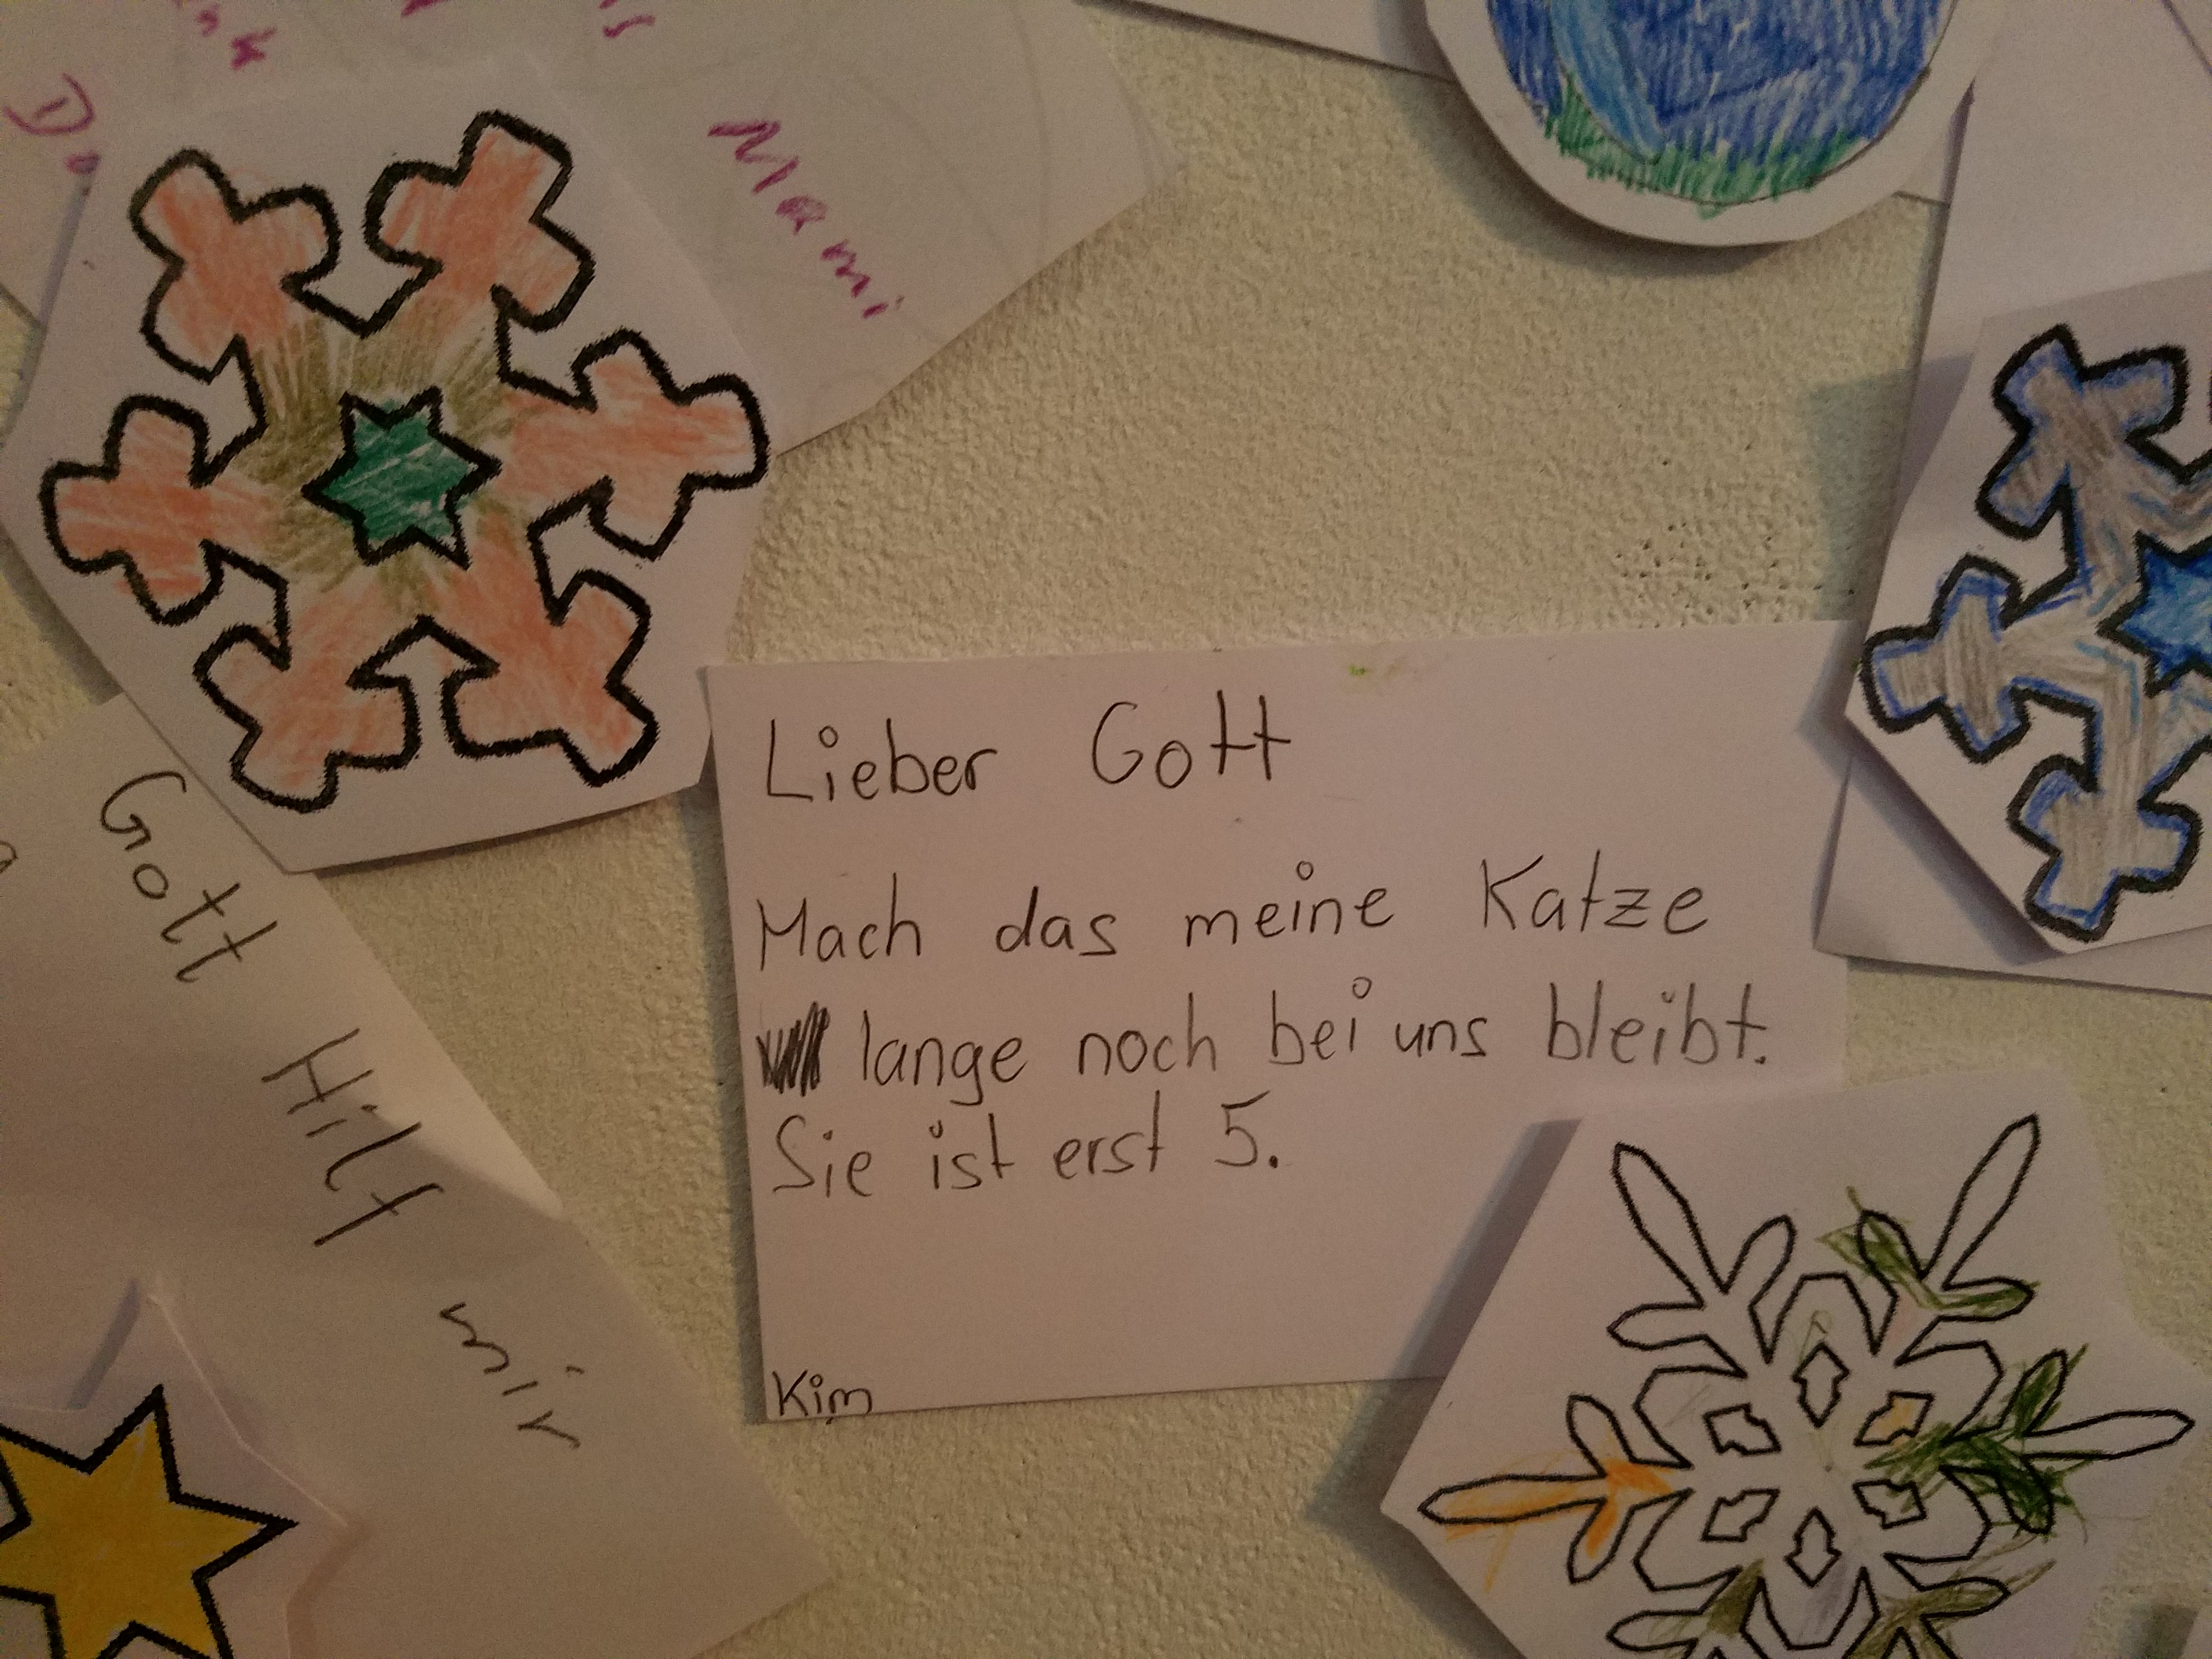 Mami
Lieber Gott
Mach das meine Katze
lange noch bei uns bleibt.
Sie ist erst 5.
Kim
Gott
Hilf
mir